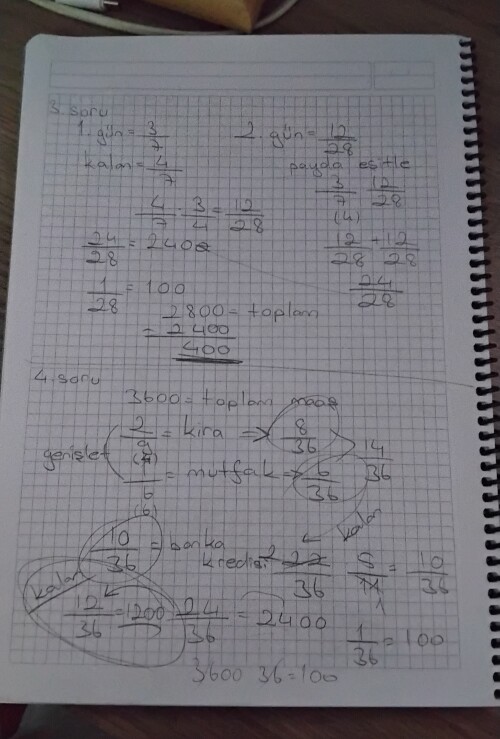 3. soru
1. gün = 3/7   2. gün = 12/28
kalan = 4/7   payda eşitle
3/7 (4)   12/28
4/7 · 3/4 = 12/28
12/28 + 12/28
24/28 = 2400
24/28
1/28 = 100
2800 = toplam
= 2400
400
4. soru
3600 = toplam maaş
genişlet
2/9 (4) = kira => 8/36
14/36
1/6 (6) = mutfak => 6/36
kalan
10/36 = banka kredisi
22/36 · 5/11 = 10/36
kalan
12/36 = 1200   24/36 = 2400
1/36 = 100
3600 36 = 100